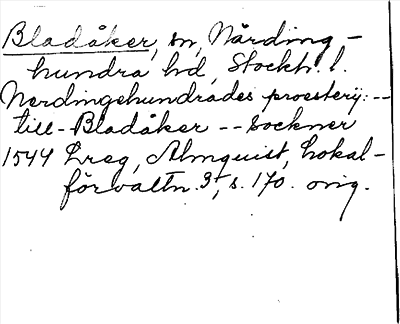 Bladåker, sn, Närding-
hundra hd, Stockh. l.
Nerdingehundrades proesterij: --
till - Bladåker -- Sockner
1544 Lreg, Almquist, Lokal-
förvaltn. 3, s. 170. orig.